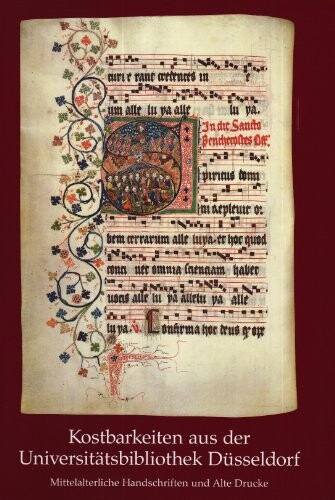 curi e rant credentes in e
um alle lu ya. alle lu ya.
In die Sancto
Penthecostes Off.
Spiritus domi
ni repleuit or
bem terrarum alle luya. et hoc quod
conti net omnia scienciam habet
uocis alle lu ya alleluya alle
lu ya. Confirma hoc deus
Kostbarkeiten aus der
Universitätsbibliothek Düsseldorf
Mittelalterliche Handschriften und Alte Drucke